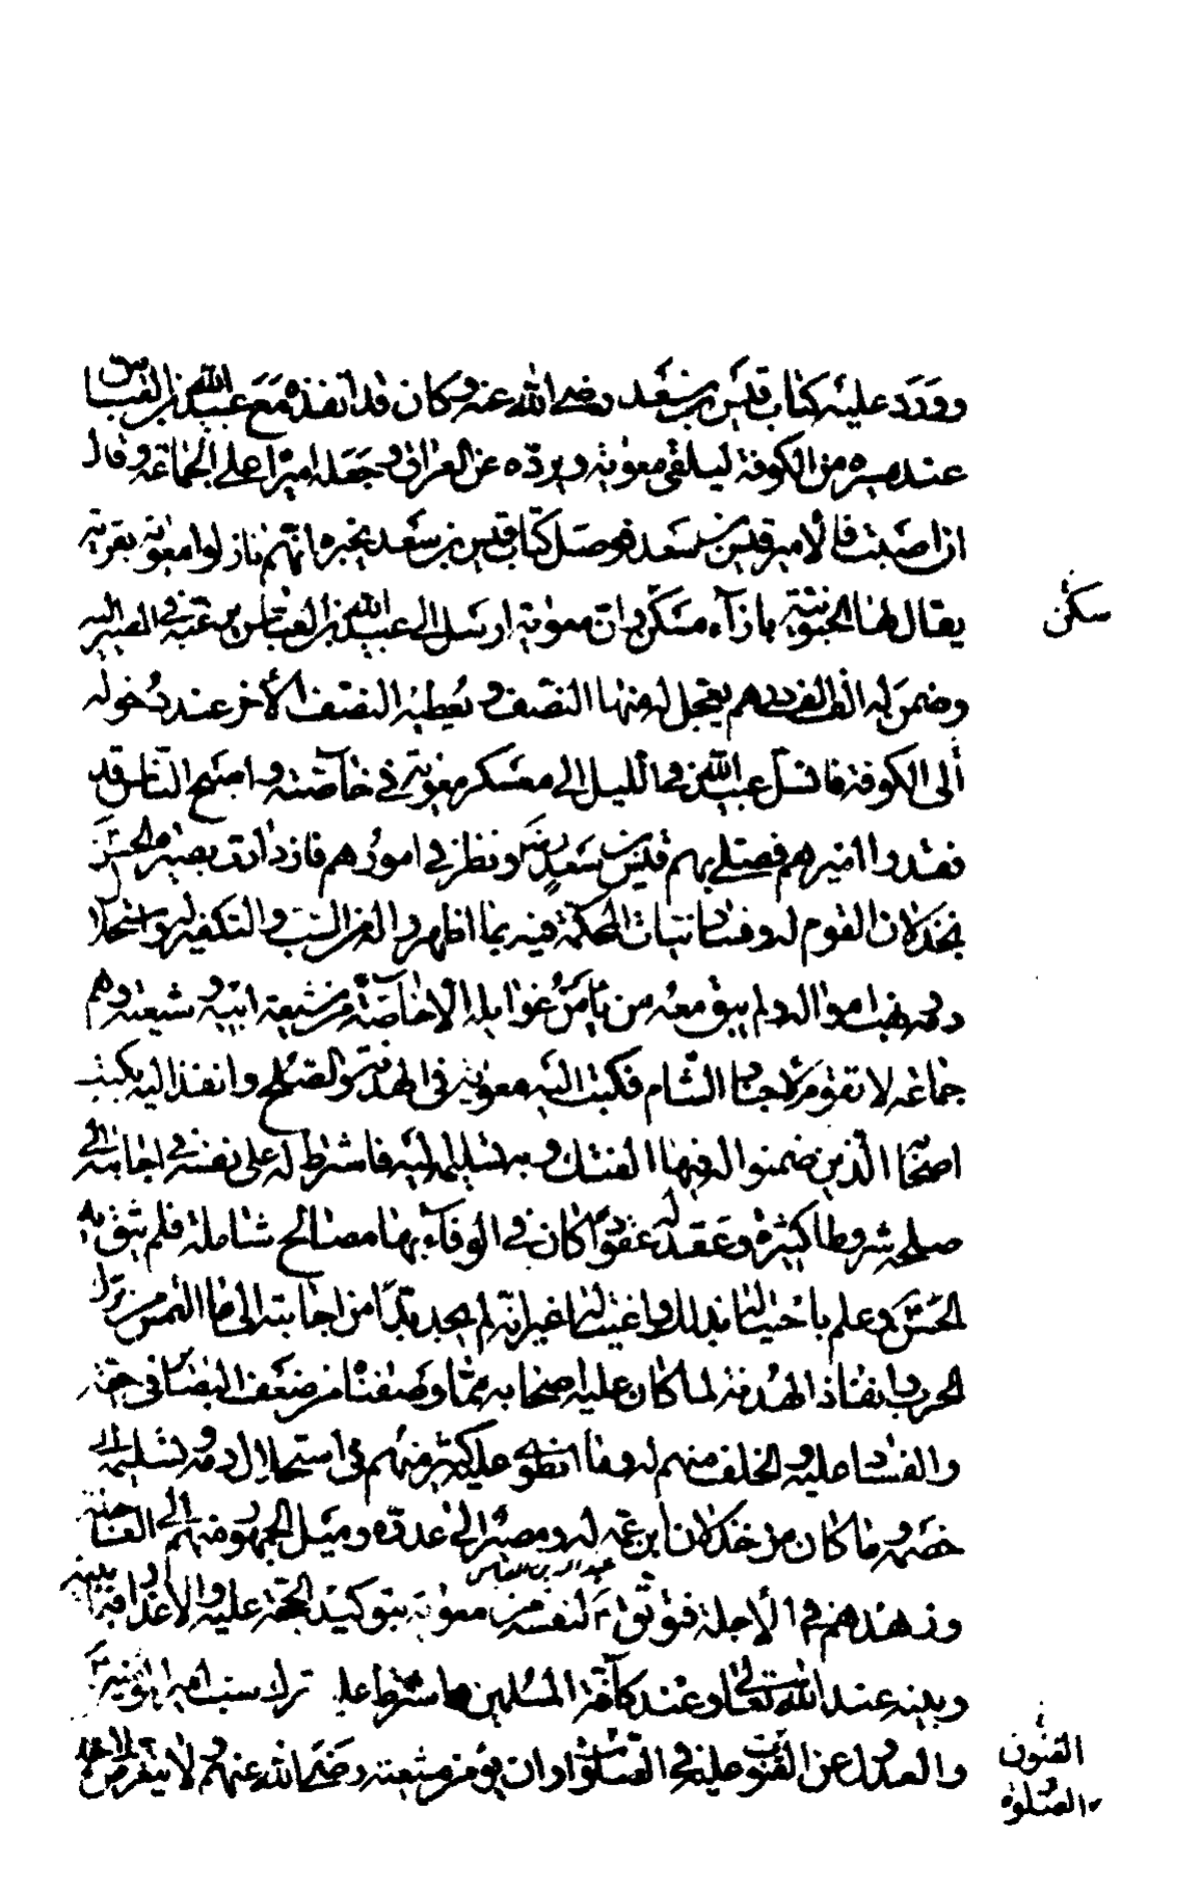 وورد عليه كتاب قيس بن سعد رضي الله عنه وكان قد انفذه مع عبيد الله بن العباس
عند مسيره من الكوفة ليلقى معوية ويرده عن العراق وجعله اميرا على الجماعة وقال
ان اصبت فالامير قيس بن سعد فوصل كتاب قيس بن سعد يخبره انهم نازلوا معوية بقرية
يقال لها الحبوبية بازآء مسكن وان معوية ارسل الى عبيد الله بن العباس يرغبه في المصير اليه
وضمن له الف الف درهم يعجل له منها النصف ويعطيه النصف الاخر عند دخوله
الى الكوفة فانسل عبيد الله في الليل الى معسكر معوية في خاصته واصبح الناس قد
فقدوا اميرهم فصلى بهم قيس بن سعد رضي ونظر في امورهم فازدادت بصيرة الحسن
بخذلان القوم له وفساد نيات المحكمة فيه بما اظهروا له من السب والتكفير له واستحلال
دمه ونهب امواله ولم يبق معه من يأمن غوايله الا خاصة من شيعة ابيه وشيعته وهم
جماعة لا تقوم لاجناد الشام فكتب اليه معوية في الهدنة والصلح وانفذ اليه بكتب
اصحابه الذين ضمنوا له فيها الفتك به وتسليمه اليه فاشترط له على نفسه في اجابته الى
صلحه شروطا كثيرة وعقد له عقودا كان في الوفآء بها مصالح شاملة فلم يثق به
الحسن وعلم باحتياله بذلك واغتياله غير انه لم يجد بدا من اجابته الى ما التمس من ترك
الحرب وانفاذ الهدنة لما كان عليه اصحابه مما وصفناه من ضعف البصائر في حقه
والفساد عليه والخلف منهم له وما انطوى عليه كثير منهم في استحلال دمه وتسليمه الى
خصمه وما كان من خذلان ابن عمه له ومصيره الى عدوه وميل الجمهور منهم الى العاجلة
عبيد الله بن العباس
وزهدهم في الاجلة فتوثق م لنفسه من معوية بتوكيد الحجة عليه والاعذار فيما بينه
وبينه عند الله تعالى وعند كآفة المسلمين واشترط عليه ترك سب امير المؤمنين
والعدول عن القنوت عليه في الصلوة وان يؤمن شيعته رضي الله عنهم ولا يتعرض لاحد
مسكن
القنوت
الصلوة